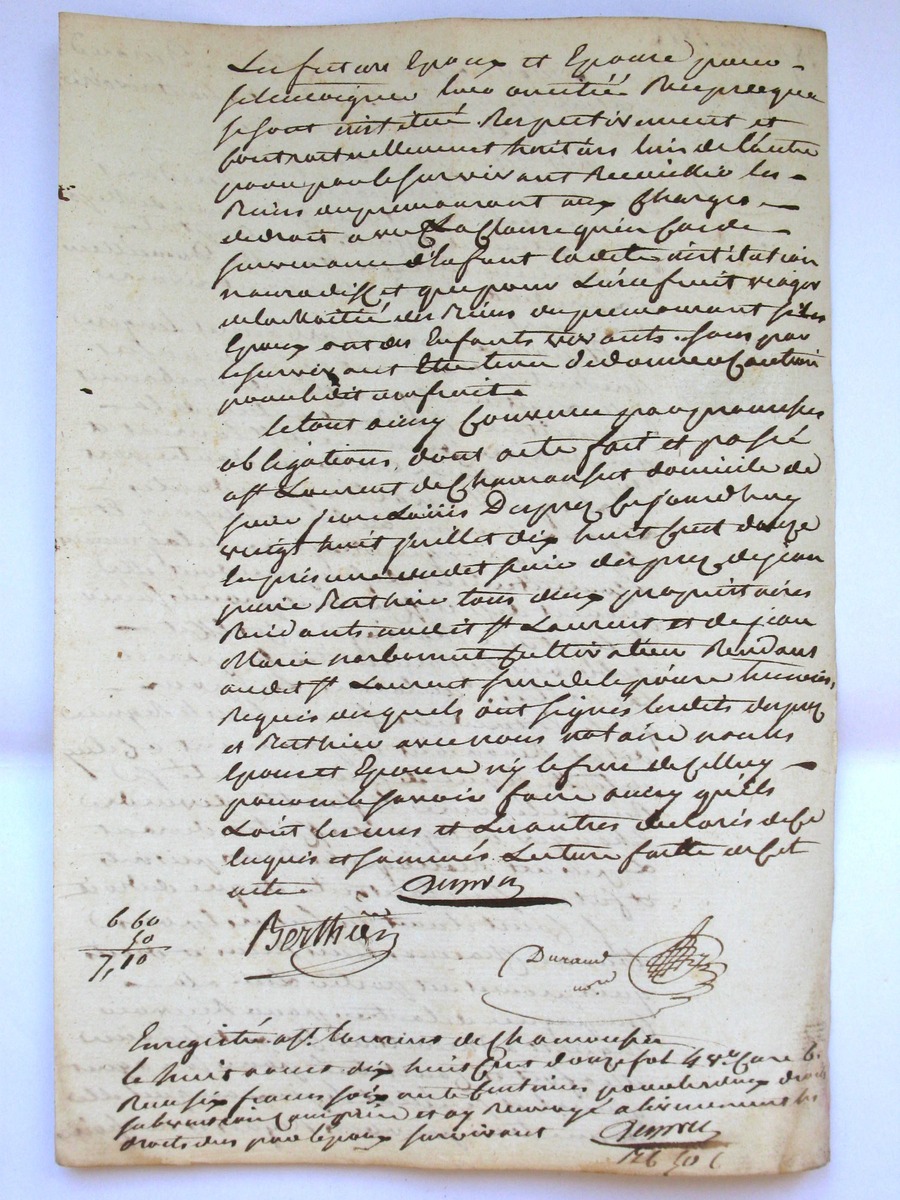 Les future Epoux et Epouse pour
se temoigner leur amitié Reciproque
se sont institué Respectivement et
Contractuellement heritiers luis de l'autre
pour par le survivant Recueillir les
Biens du premourant aux Charges
de droit avec La Clause qu'en Cas de
survenance d'Enfant ladite institution
n'aura d'effet que pour L'usufruit viager
de la Moitié des Biens du premourant si les
Epoux ont des Enfants vivants. sans que
le survivant Etre tenu de donner Caution
pour ledit usufruit
Le tout ainsy Convenu par promesses
obligations, dont acte fait et passé
a St Laurent de Chamousset domicile de
sieur jean Louis Dupuy Cejourd'huy
vingt huit juillet dix huit Cent douze
En présence dudit sieur dupuy, de jean
pierre Berthier tous deux propriétaires
Residants audit St Laurent et de jean
Marie narbonnet Cultivateur Residant
audit St Laurent temoins,
Requis desquels ont signés lesdits dupuy
et Berthier avec nous notaire non les
Epoux et Epouse ny le frere de Celluy
pour ne le savoir faire ainsy qu'ils
L'ont les uns et Les autres declarés de Ce
Enquis et sommés. Lecture faitte de Cet
acte.
Berthier
6 60
50
7,10
Durand
nore
Enregistré a St. Laurens de Chamousset
le huit aoust dix huit Cent douze fol 48 Vo Case 6.
Reçu six francs soix ante Centimes pour les deux droits
subvention Comprise et ay Renvoyé a les
droits dus par l'epoux survivant